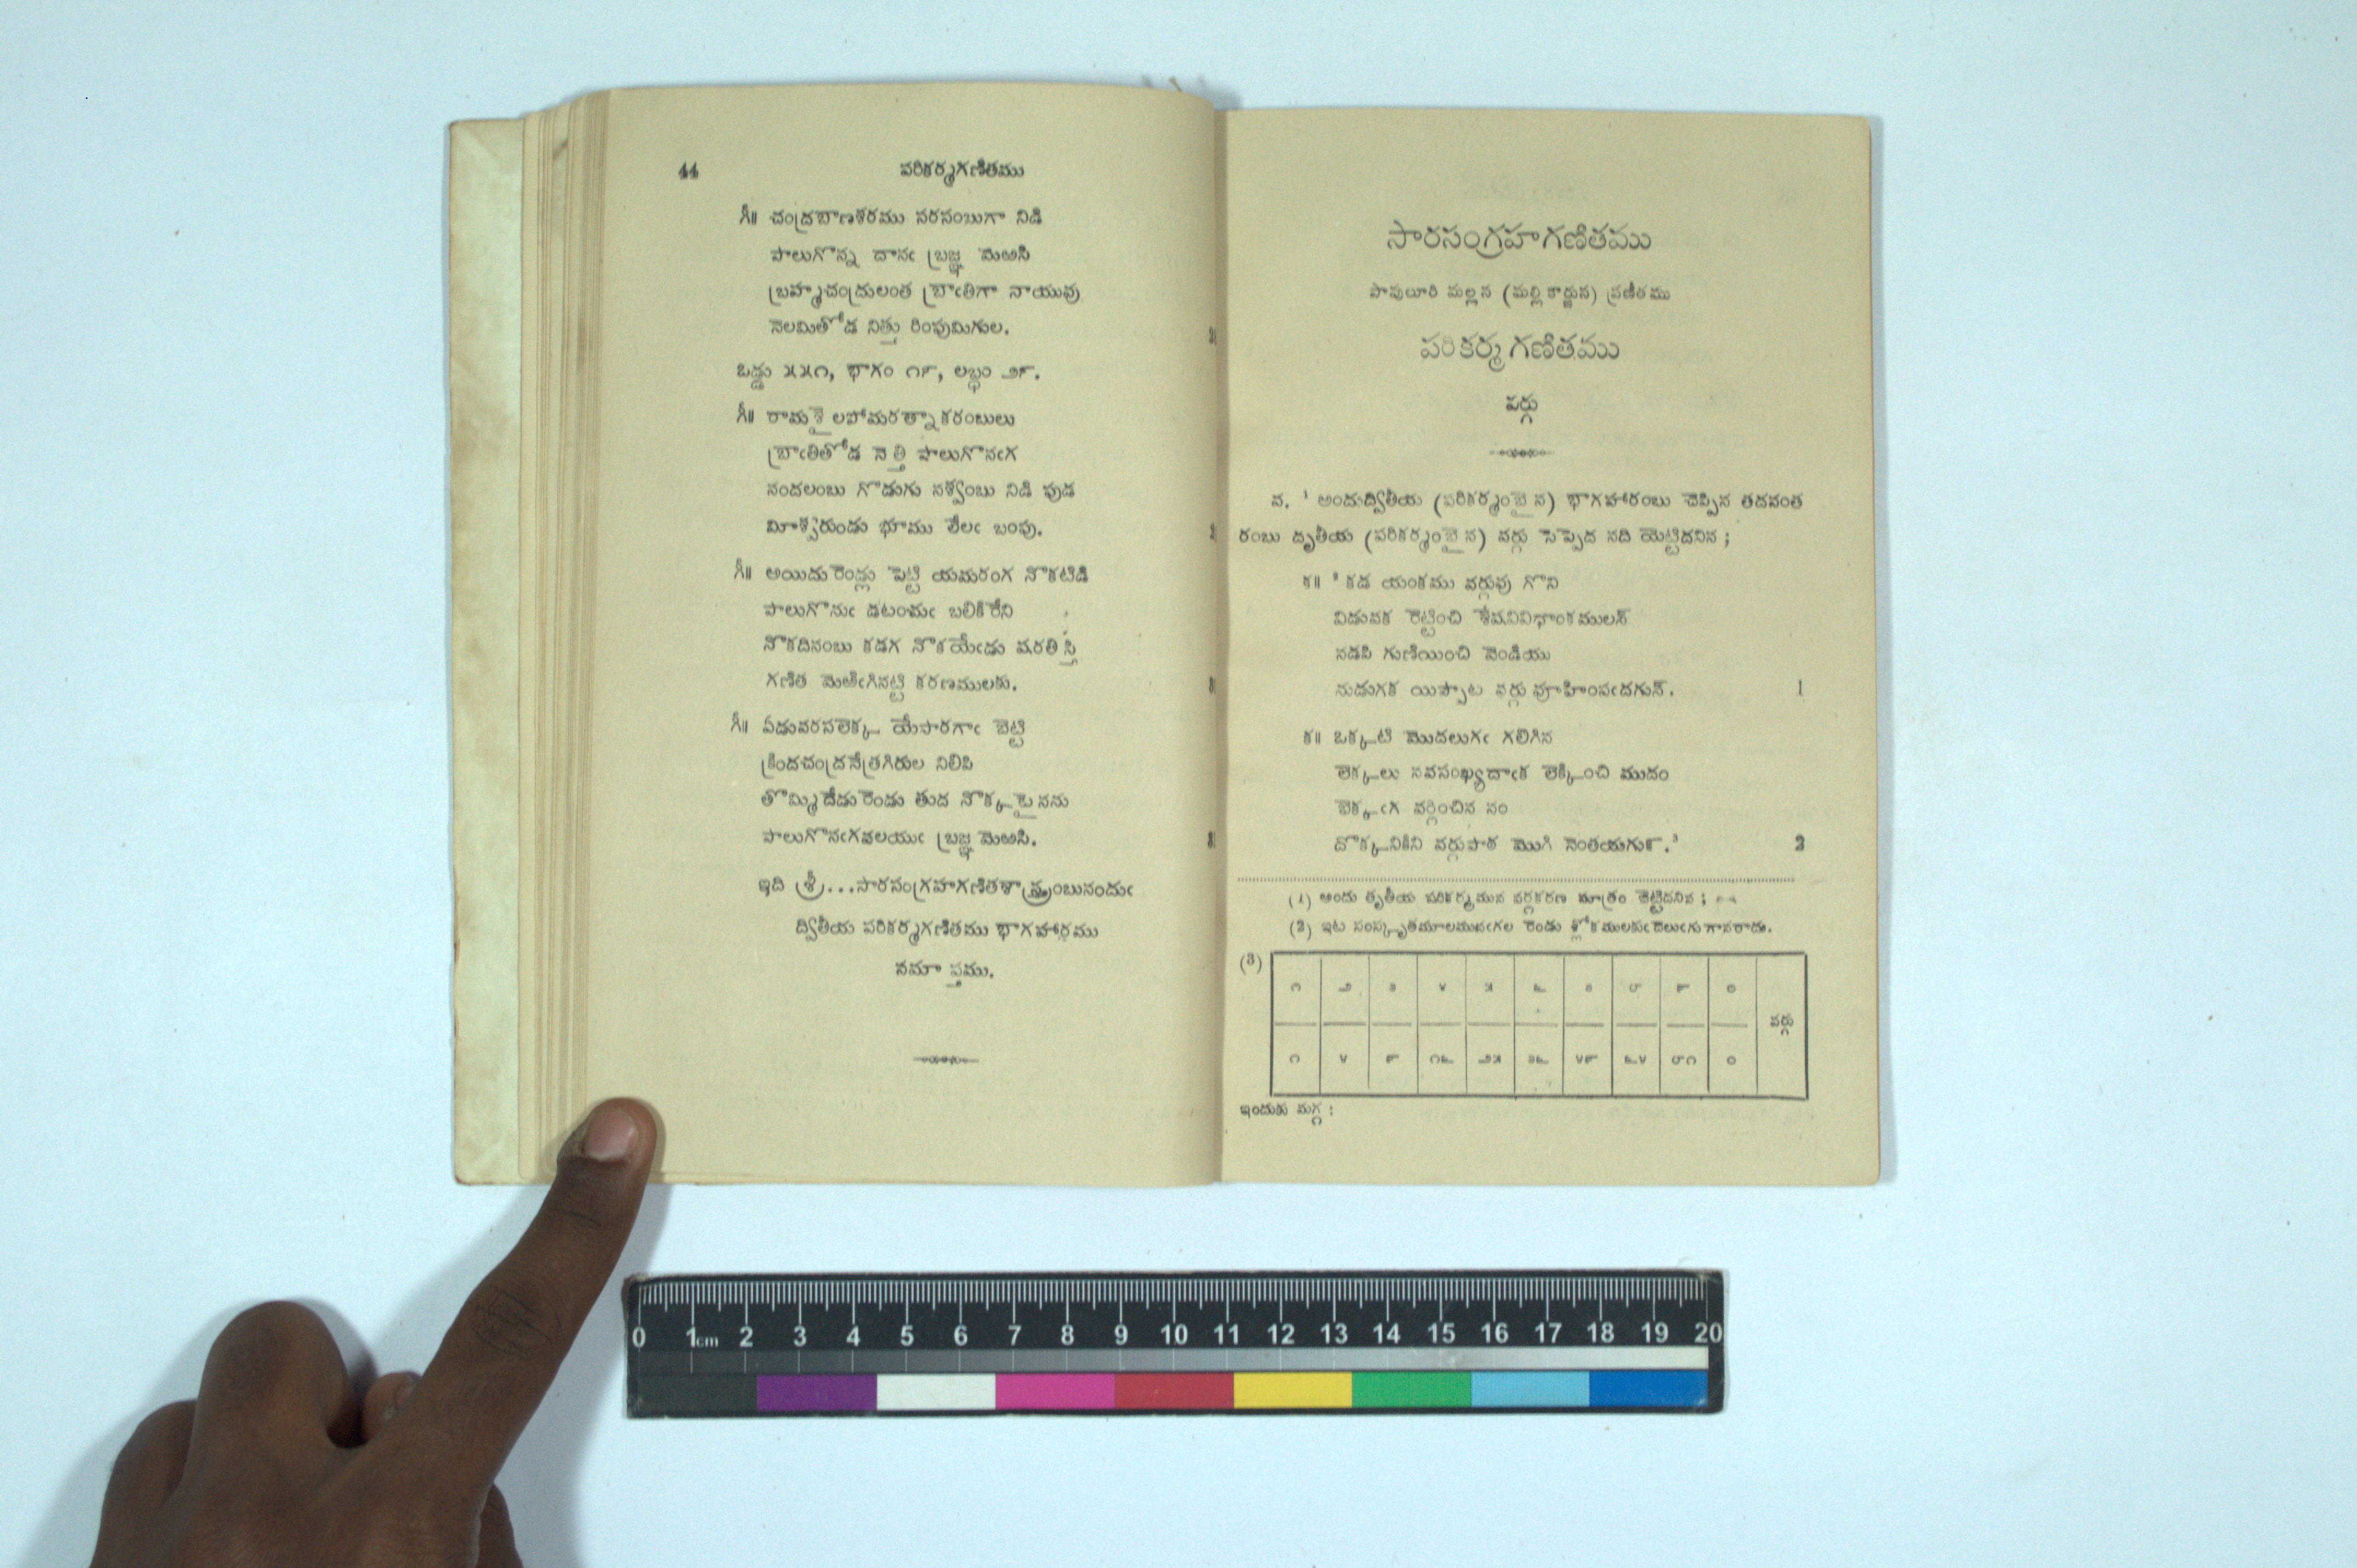 44 పరికర్మగణితము
గీ॥ చంద్రబాణశరము సరసంబుగా నిడి
పాలుగొన్న దానఁ బ్రజ్ఞ మెఱసి
బ్రహ్మచంద్రులంత బ్రాఁతిగా నాయువు
నెలమితోడ నిత్తు రింపుమిగుల.
ఒడ్డు ౫౫౧, భాగం ౧౯, లబ్ధం ౨౯.
గీ॥ రామశైలవోమరత్నాకరంబులు
బ్రాఁతితోడ నెత్తి పాలుగొనఁగ
నందలంబు గొడుగు నశ్వంబు నిడి పుడ
మీశ్వరుండు భూము లేలఁ బంపు.
గీ॥ అయిదు రెండ్లు పెట్టి యమరంగ నొకటిడి
పాలుగొనుఁ డటంచుఁ బలికిరేని
నొకదినంబు కడగ నొకయేఁడు వరతిస్తి
గణిత మెఱిఁగినట్టి కరణములకు.
గీ॥ ఏడువరసలెక్క యేపారగాఁ బెట్టి
క్రిందచంద్రనేత్రగిరుల నిలిపి
తొమ్మిదేడు రెండు తుద నొక్కటైనను
పాలుగొనఁగవలయుఁ బ్రజ్ఞ మెఱసి.
ఇది శ్రీ...సారసంగ్రహగణితశాస్త్రంబునందుఁ
ద్వితీయ పరికర్మగణితము భాగహారము
సమాప్తము.
సారసంగ్రహగణితము
పావులూరి మల్లన (మల్లికార్జున) ప్రణీతము
పరికర్మగణితము
వర్గు
వ. ¹ అందుద్వితీయ (పరికర్మంబైన) భాగహారంబు చెప్పిన తదనంత
రంబు దృతీయ (పరికర్మంబైన) వర్గు సెప్పెద నది యెట్టిదనిన ;
క॥ ² కడ యంకము వర్గువు గొని
విడువక రెట్టించి శేషవివిధాంకములన్
నడపి గుణియించి వెండియు
నుడుగక యిప్పాట వర్గు వూహింపఁదగున్. 1
క॥ ఒక్కటి మొదలుగఁ గలిగిన
లెక్కలు నవసంఖ్యదాఁక లెక్కించి ముదం
బెక్కఁగ వర్గించిన నం
దొక్కనికిని వర్గుపాఠ మొగి నెంతయగున్.³ 2
(1) అందు తృతీయ పరికర్మమున వర్గకరణ మాత్రం బెట్టిదనిన ;
(2) ఇట సంస్కృతమూలమునఁగల రెండు శ్లోకములకుఁదెలుఁగు గానరాదు.
(3) ౧ ౨ ౩ ౪ ౫ ౬ ౭ ౮ ౯ ౦
వర్గు
౧ ౪ ౯ ౧౬ ౨౫ ౩౬ ౪౯ ౬౪ ౮౧ ౦
ఇందుకు మగ్గ :